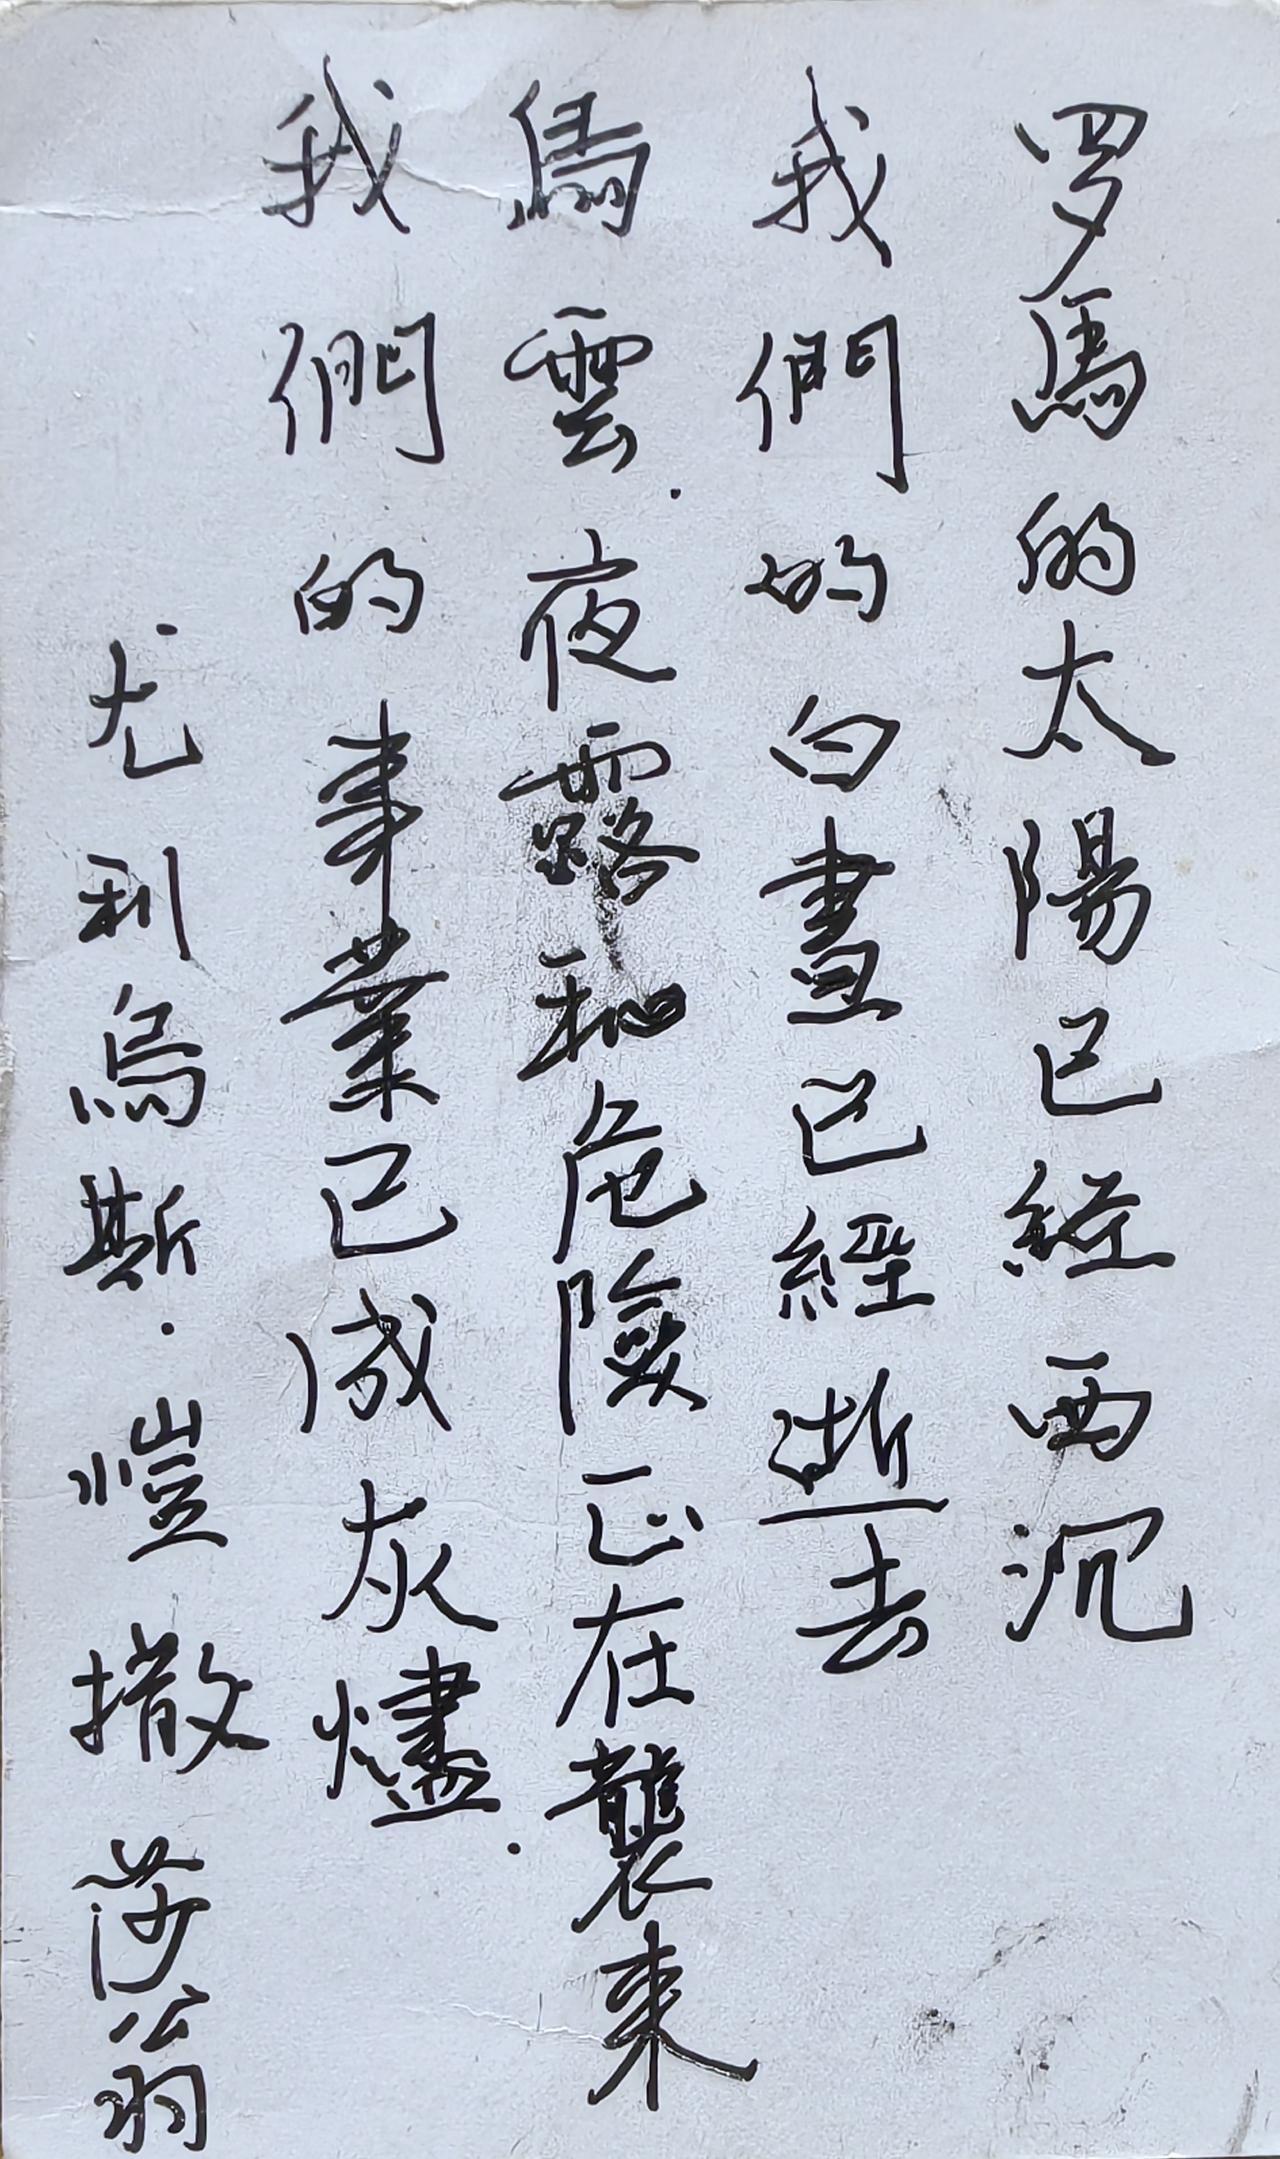 罗馬的太陽已經西沉
我們的白晝已經逝去
烏雲.夜露和危險正在襲來
我們的事業已成灰燼.
尤利烏斯.愷撒 莎翁